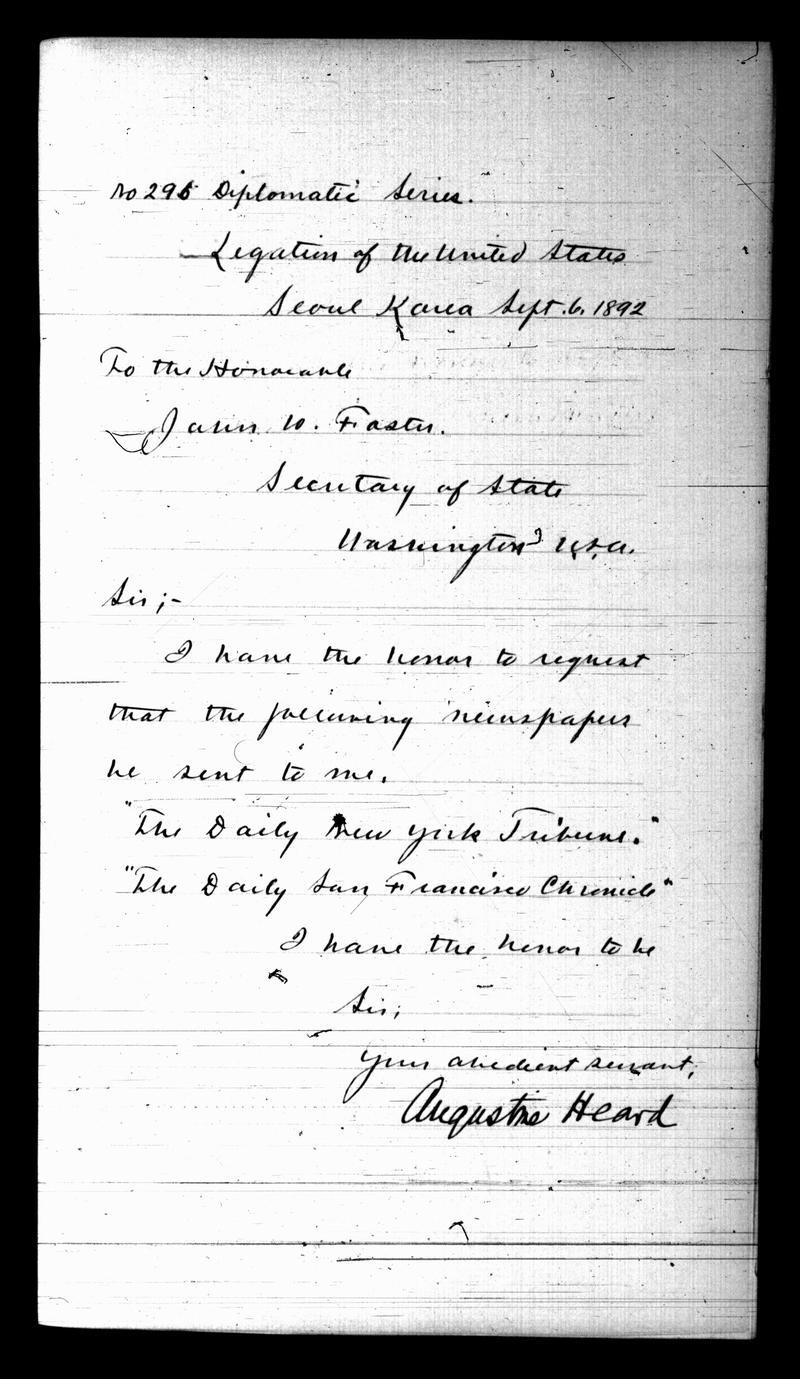 No 296 Diplomatic Series.
Legation of the United States
Seoul Korea Sept. 6. 1892
To the Honorable
John W. Foster.
Secretary of State
Washington U.S.A.
Sir;-
I have the honor to request
that the following newspapers
be sent to me.
"The Daily New York Tribune."
"The Daily San Francisco Chronicle"
I have the honor to be
Sir;
Your obedient servant,
Augustine Heard